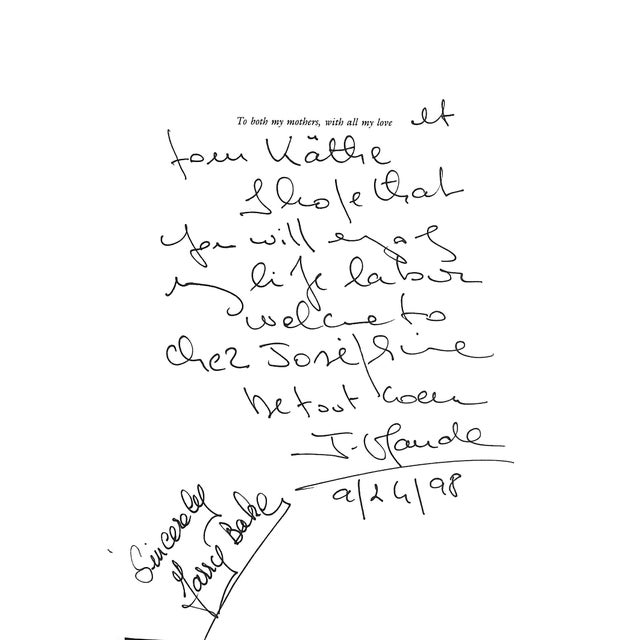 To both my mothers, with all my love et
pour Käthe
I hope that
you will enjoy
my life labour
welcome to
chez Joséphine
de tout coeur
J-Claude
9/24/98
Sincerely
Jarry Baker